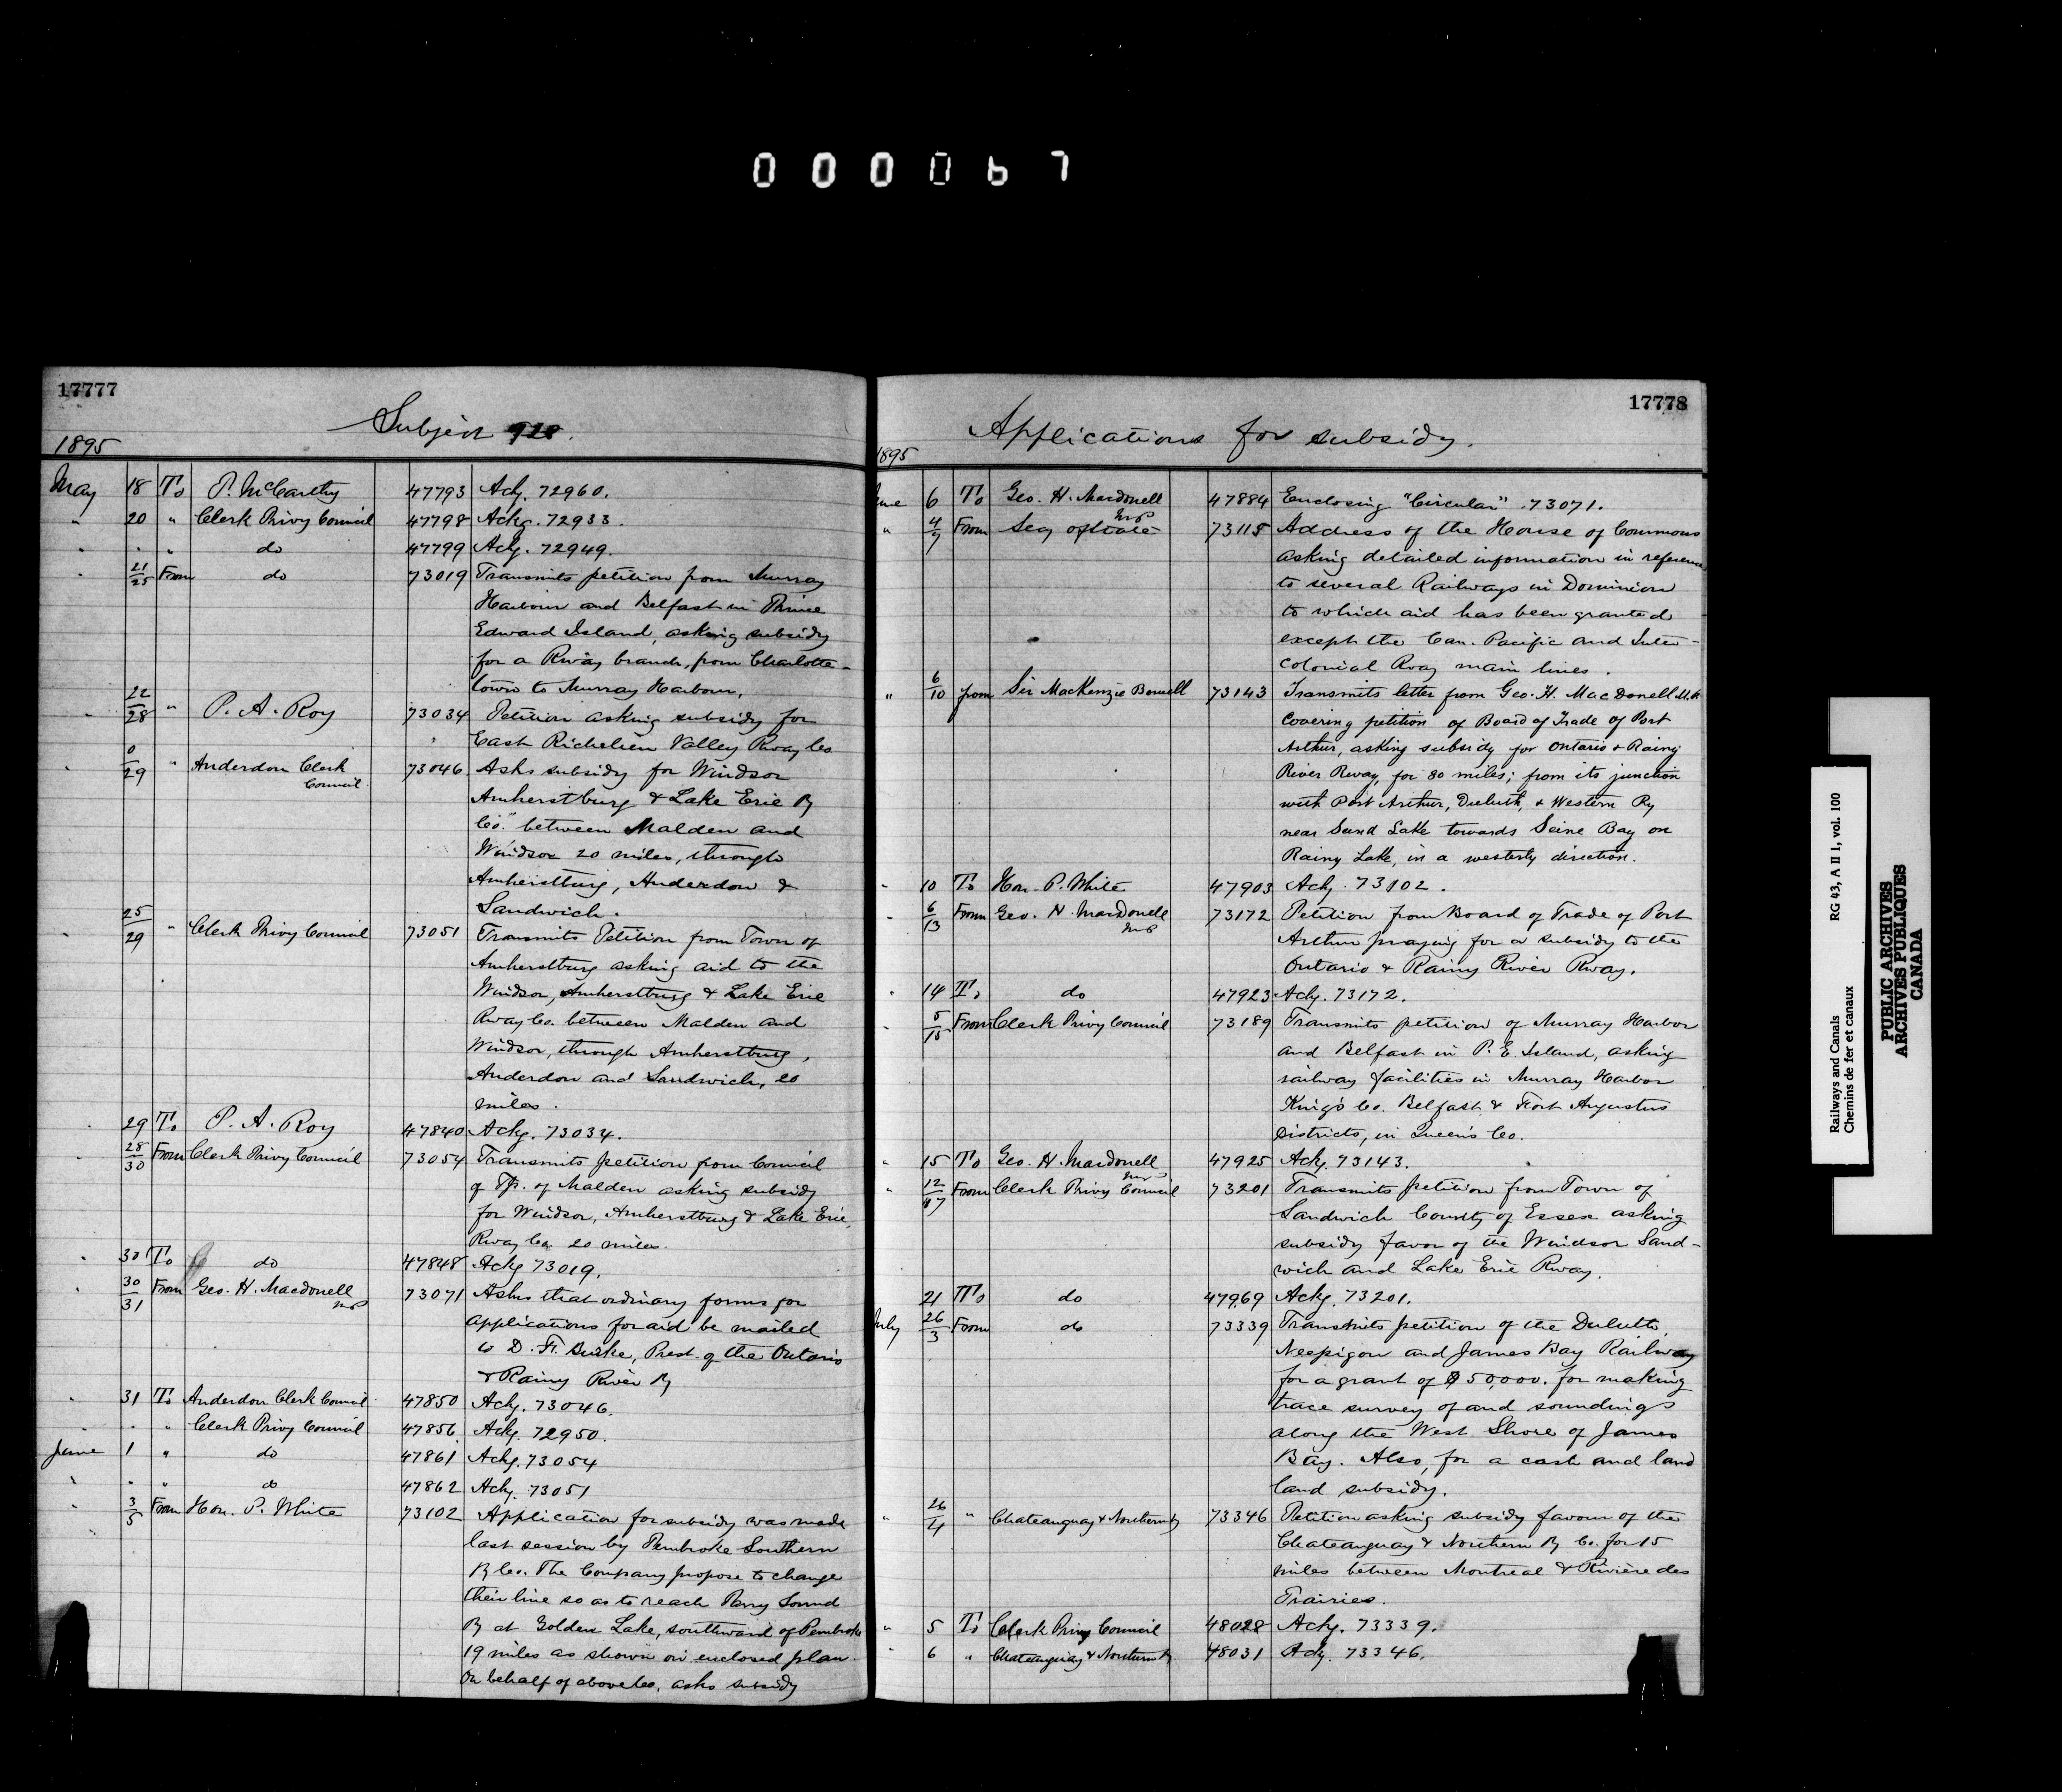 000067
17777
Subject
1895
May 18 To P. McCarthy 47793 Ackg. 72960.
" 20 " Clerk Privy Council 47798 Ackg. 72933.
" " " do 47799 Ackg. 72949.
" 21/25 From do 73019 Transmits petition from Murray
Harbour and Belfast in Prince
Edward Island, asking subsidy
for a Rway branch, from Charlotte-
town to Murray Harbour.
" 22/28 " P. A. Roy 73034 Petition asking subsidy for
East Richelieu Valley Rway Co.
" 0/29 " Anderdon Clerk Council 73046 Asks subsidy for Windsor
Amherstburg & Lake Erie Ry
Co. between Malden and
Windsor 20 miles, through
Amherstburg, Anderdon &
Sandwich.
" 25/29 " Clerk Privy Council 73051 Transmits Petition from Town of
Amherstburg asking aid to the
Windsor, Amherstburg & Lake Erie
Rway Co. between Malden and
Windsor, through Amherstburg,
Anderdon and Sandwich, 20
miles.
" 29 To P. A. Roy 47840 Ackg. 73034.
" 28/30 From Clerk Privy Council 73054 Transmits petition from Council
of Tp. of Malden asking subsidy
for Windsor, Amherstburg & Lake Erie,
Rway Co. 20 miles.
" 30 To do 47848 Ackg 73019.
" 30/31 From Geo. H. Macdonell MP 73071 Asks that ordinary forms for
applications for aid be mailed
to D. F. Burke, Prest. of the Ontario
& Rainy River Ry
" 31 To Anderdon Clerk Council 47850 Ackg. 73046.
" " " Clerk Privy Council 47856 Ackg. 72950.
June 1 " do 47861 Ackg. 73054
" " " do 47862 Ackg. 73051
" 3/5 From Hon. P. White 73102 Application for subsidy was made
last session by Pembroke Southern
Ry Co. The Company propose to change
their line so as to reach Parry Sound
Ry at Golden Lake, southward of Pembroke
19 miles as shown on enclosed plan.
On behalf of above Co. asks subsidy
17778
Applications for subsidy.
1895
June 6 To Geo. H. Macdonell MP 47884 Enclosing "Circular" 73071.
" 4/7 From Secy of State 73115 Address of the House of Commons
asking detailed information in reference
to several Railways in Dominion
to which aid has been granted
except the Can. Pacific and Inter-
colonial Rway main lines.
" 6/10 from Sir MacKenzie Bowell 73143 Transmits letter from Geo. H. MacDonell M.P.
covering petition of Board of Trade of Port
Arthur, asking subsidy for Ontario & Rainy
River Rway, for 80 miles; from its junction
with Port Arthur, Duluth, & Western Ry
near Sand Lake towards Seine Bay on
Rainy Lake, in a westerly direction.
" 10 To Hon. P. White 47903 Ackg. 73102.
" 6/13 From Geo. H. Macdonell MP 73172 Petition from Board of Trade of Port
Arthur praying for a subsidy to the
Ontario & Rainy River Rway.
" 14 To do 47923 Ackg. 73172.
" 5/15 From Clerk Privy Council 73189 Transmits petition of Murray Harbor
and Belfast in P. E. Island, asking
railway facilities in Murray Harbor
King's Co. Belfast & Fort Augustus
Districts, in Queen's Co.
" 15 To Geo. H. Macdonell MP 47925 Ackg. 73143.
" 12/17 From Clerk Privy Council 73201 Transmits petition from Town of
Sandwich County of Essex asking
subsidy favor of the Windsor Sand-
wich and Lake Erie Rway.
21 To do 47969 Ackg. 73201.
July 26/3 From do 73339 Transmits petition of the Duluth,
Neepigon and James Bay Railway
for a grant of $50,000. for making
trace survey of and soundings
along the West Shore of James
Bay. Also, for a cash and land
land subsidy.
" 26/4 " Chateauguay & Northern Ry 73346 Petition asking subsidy favour of the
Chateauguay & Northern Ry Co. for 15
miles between Montreal & Rivière des
Prairies.
" 5 To Clerk Privy Council 48028 Ackg. 73339.
" 6 " Chateauguay & Northern Ry 48031 Ackg. 73346.
Railways and Canals RG 43, A II 1, vol. 100
Chemins de fer et canaux
PUBLIC ARCHIVES
ARCHIVES PUBLIQUES
CANADA